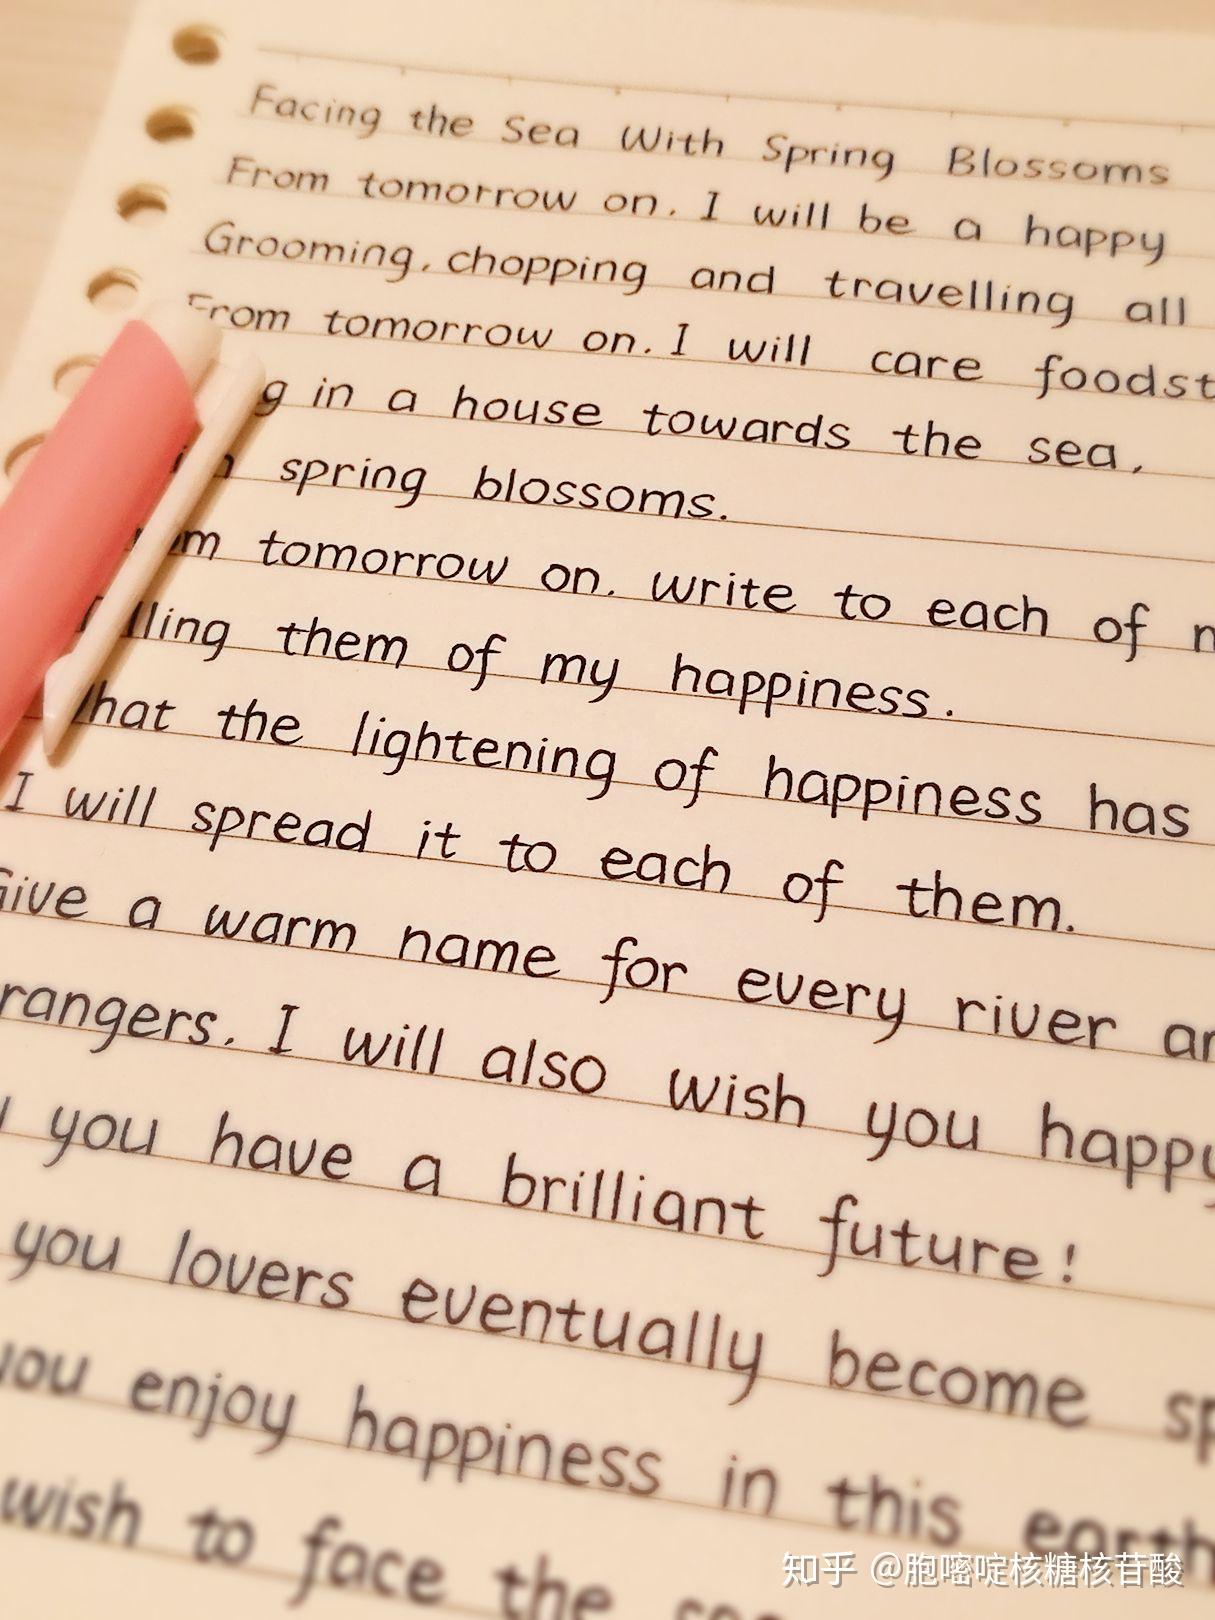 Facing the Sea With Spring Blossoms
From tomorrow on. I will be a happy
Grooming, chopping and travelling all
From tomorrow on. I will care foodst
g in a house towards the sea,
spring blossoms.
om tomorrow on. write to each of
lling them of my happiness.
What the lightening of happiness has
I will spread it to each of them.
Give a warm name for every river an
rangers. I will also wish you happy
you have a brilliant future!
you lovers eventually become sp
you enjoy happiness in this earth
wish to face the sea
知乎 @胞嘧啶核糖核苷酸